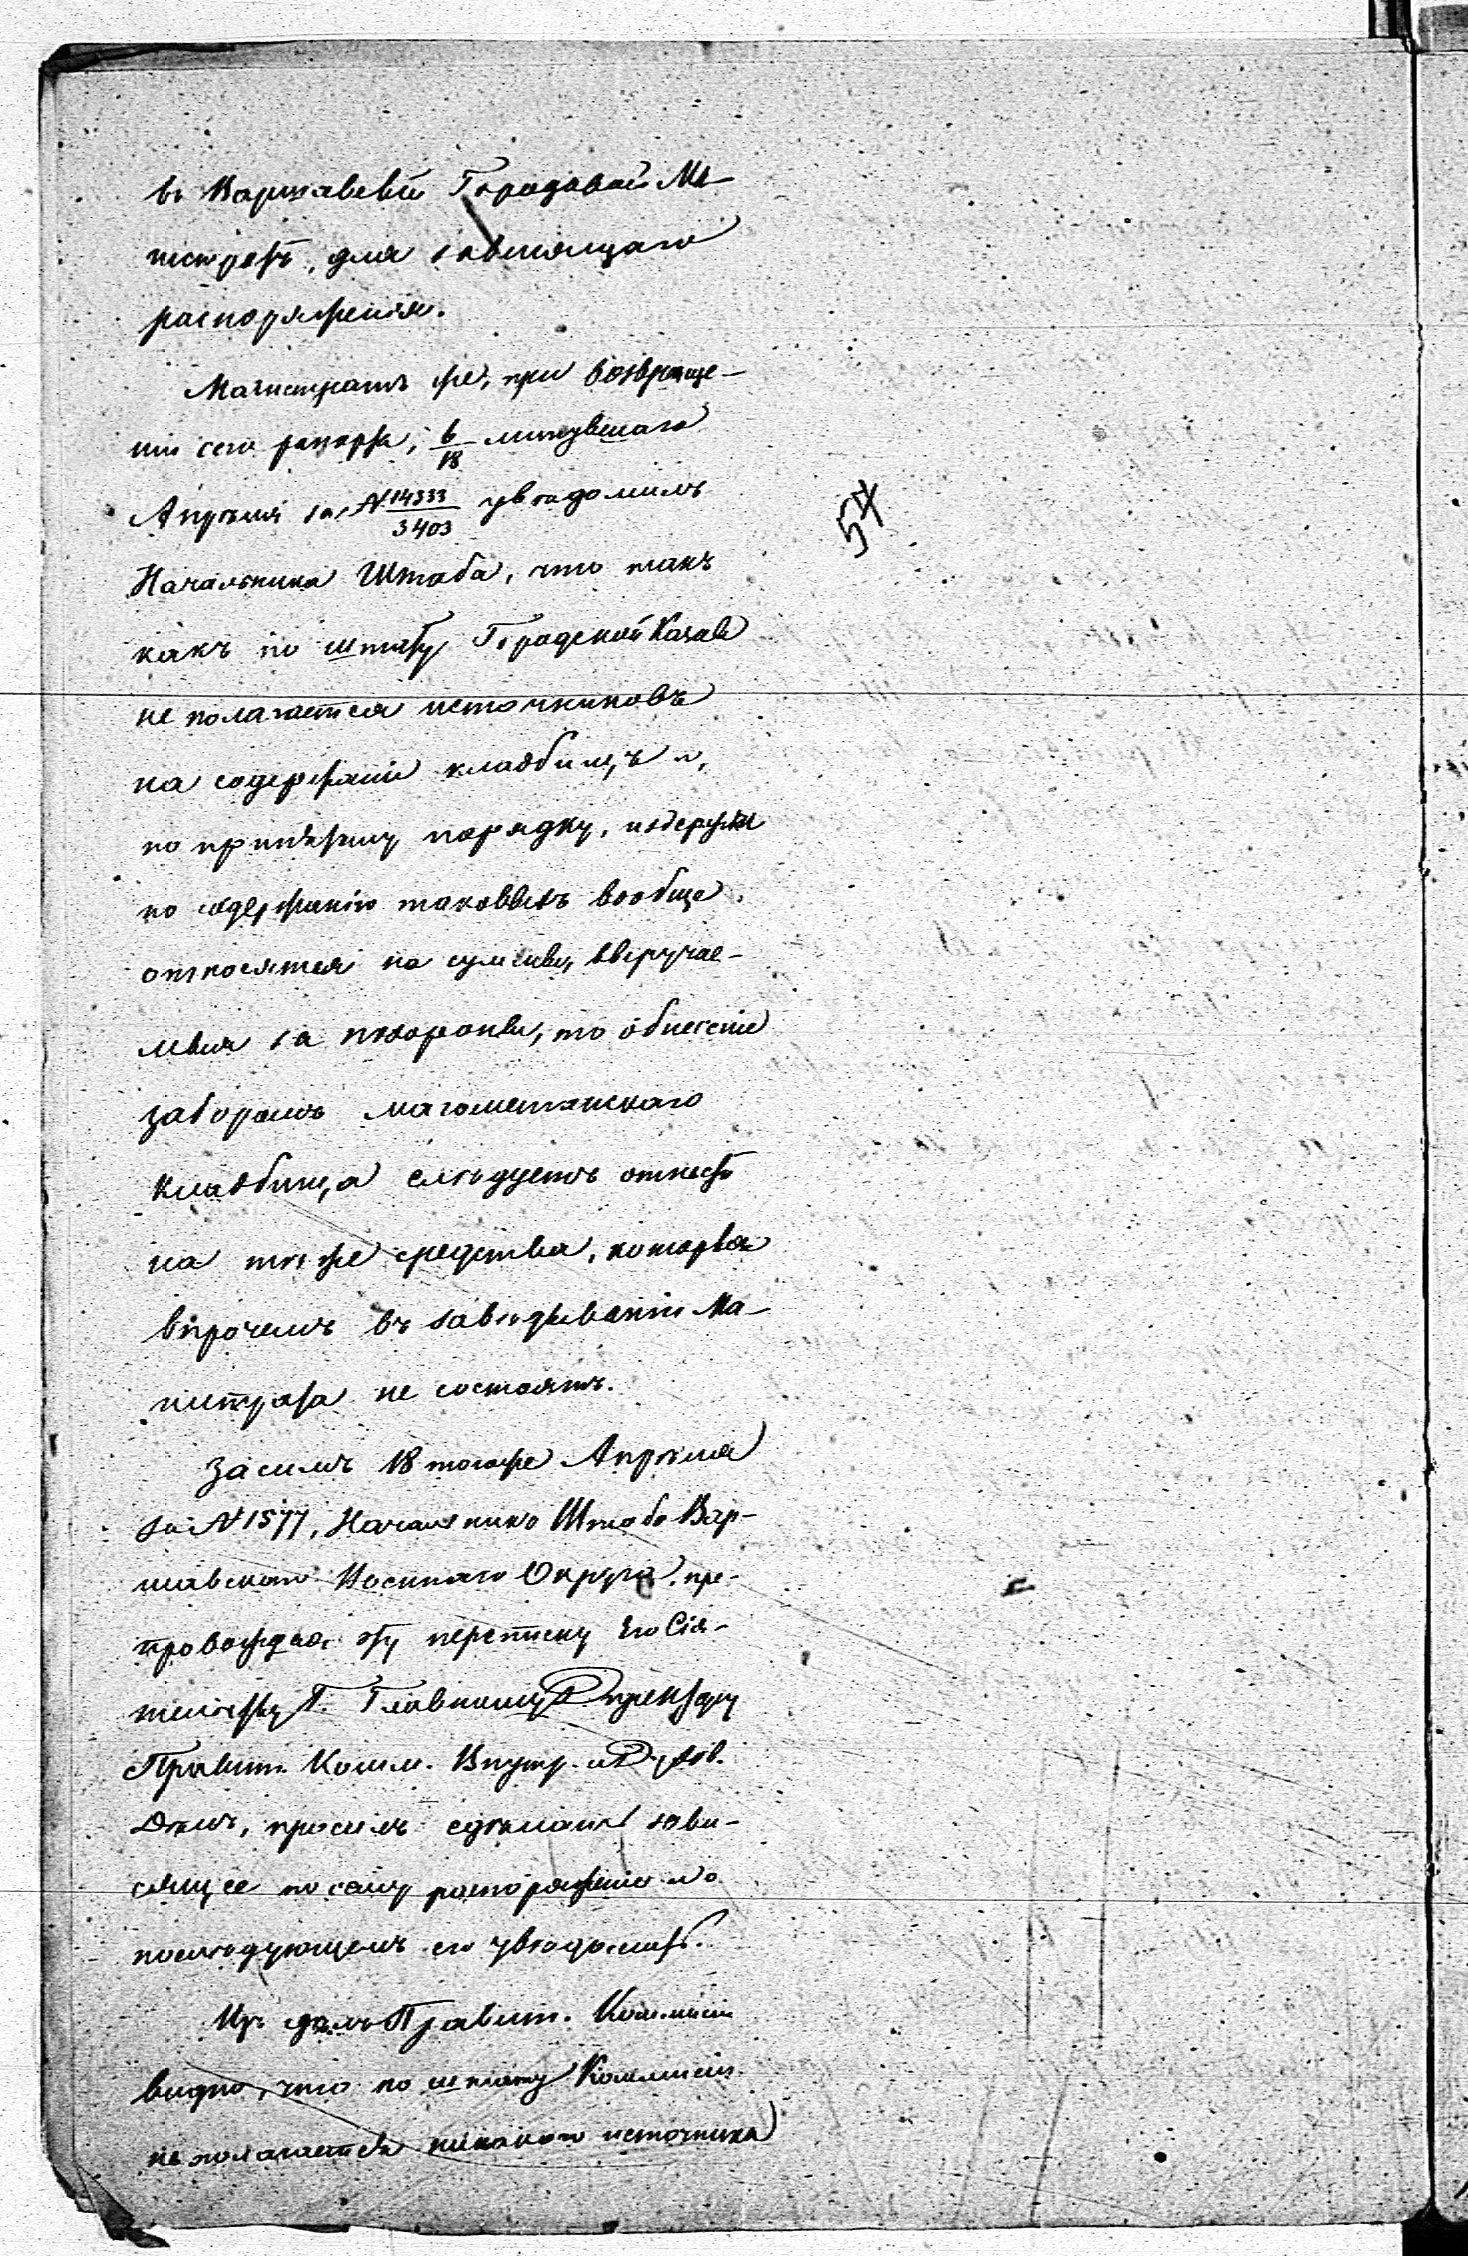 въ Варшавскій Городовой Ма-
гистратъ, для зависящаго
распоряженія.
Магистратъ же, при возвраще-
ніи сего рапорта, 6/18 минувшаго
Апрѣля за № 14333/3403 увѣдомилъ
Начальника Штаба, что такъ
какъ по штату Городской Кассы
не полагается источниковъ
на содержаніе кладбищъ и,
по принятому порядку, издержки
по содержанію таковыхъ вообще
относятся на суммы, выручае-
мыя за похороны, то обнесеніе
заборомъ магометанскаго
кладбища слѣдуетъ отнесть
на тѣ же средства, которыя
впрочемъ въ завѣдываніи Ма-
гистрата не состоятъ.
Засимъ 18 тогоже Апрѣля
за № 1577, Начальникъ Штаба Вар-
шавскаго Военнаго Округа, пре-
провождая эту переписку Его Сія-
тельству Г. Главному Директору
Правит. Комм. Внутр. и Духов.
Дѣлъ, просилъ сдѣлать зави-
сящее по сему распоряженіе и о
послѣдующемъ его увѣдомить.
Изъ дѣлъ Правит. Коммисіи
видно, что по штату Коммисіи
не полагается никакого источника
54